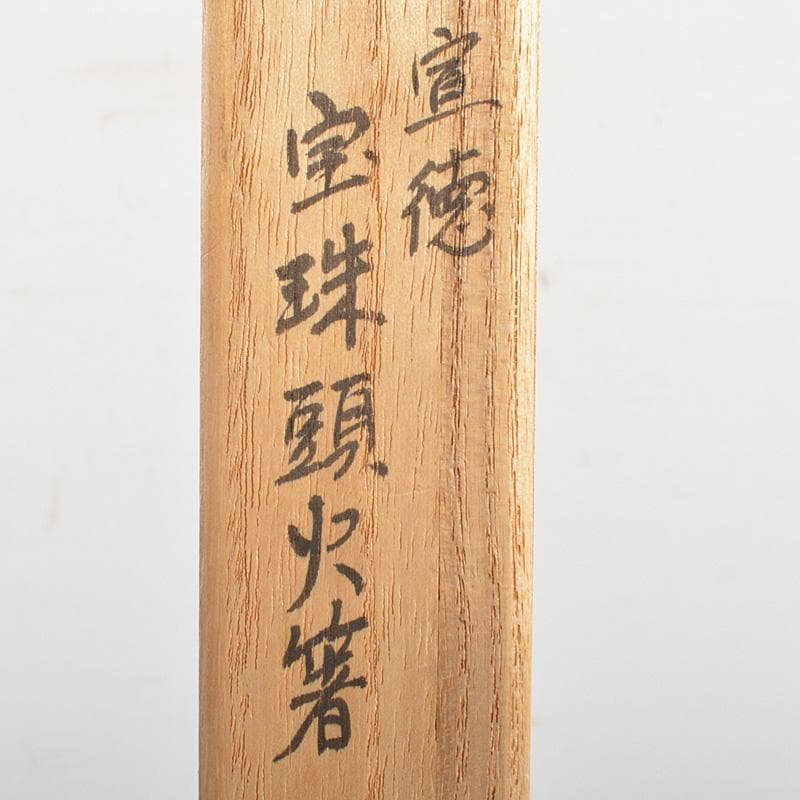 宣徳
宝珠頭火箸